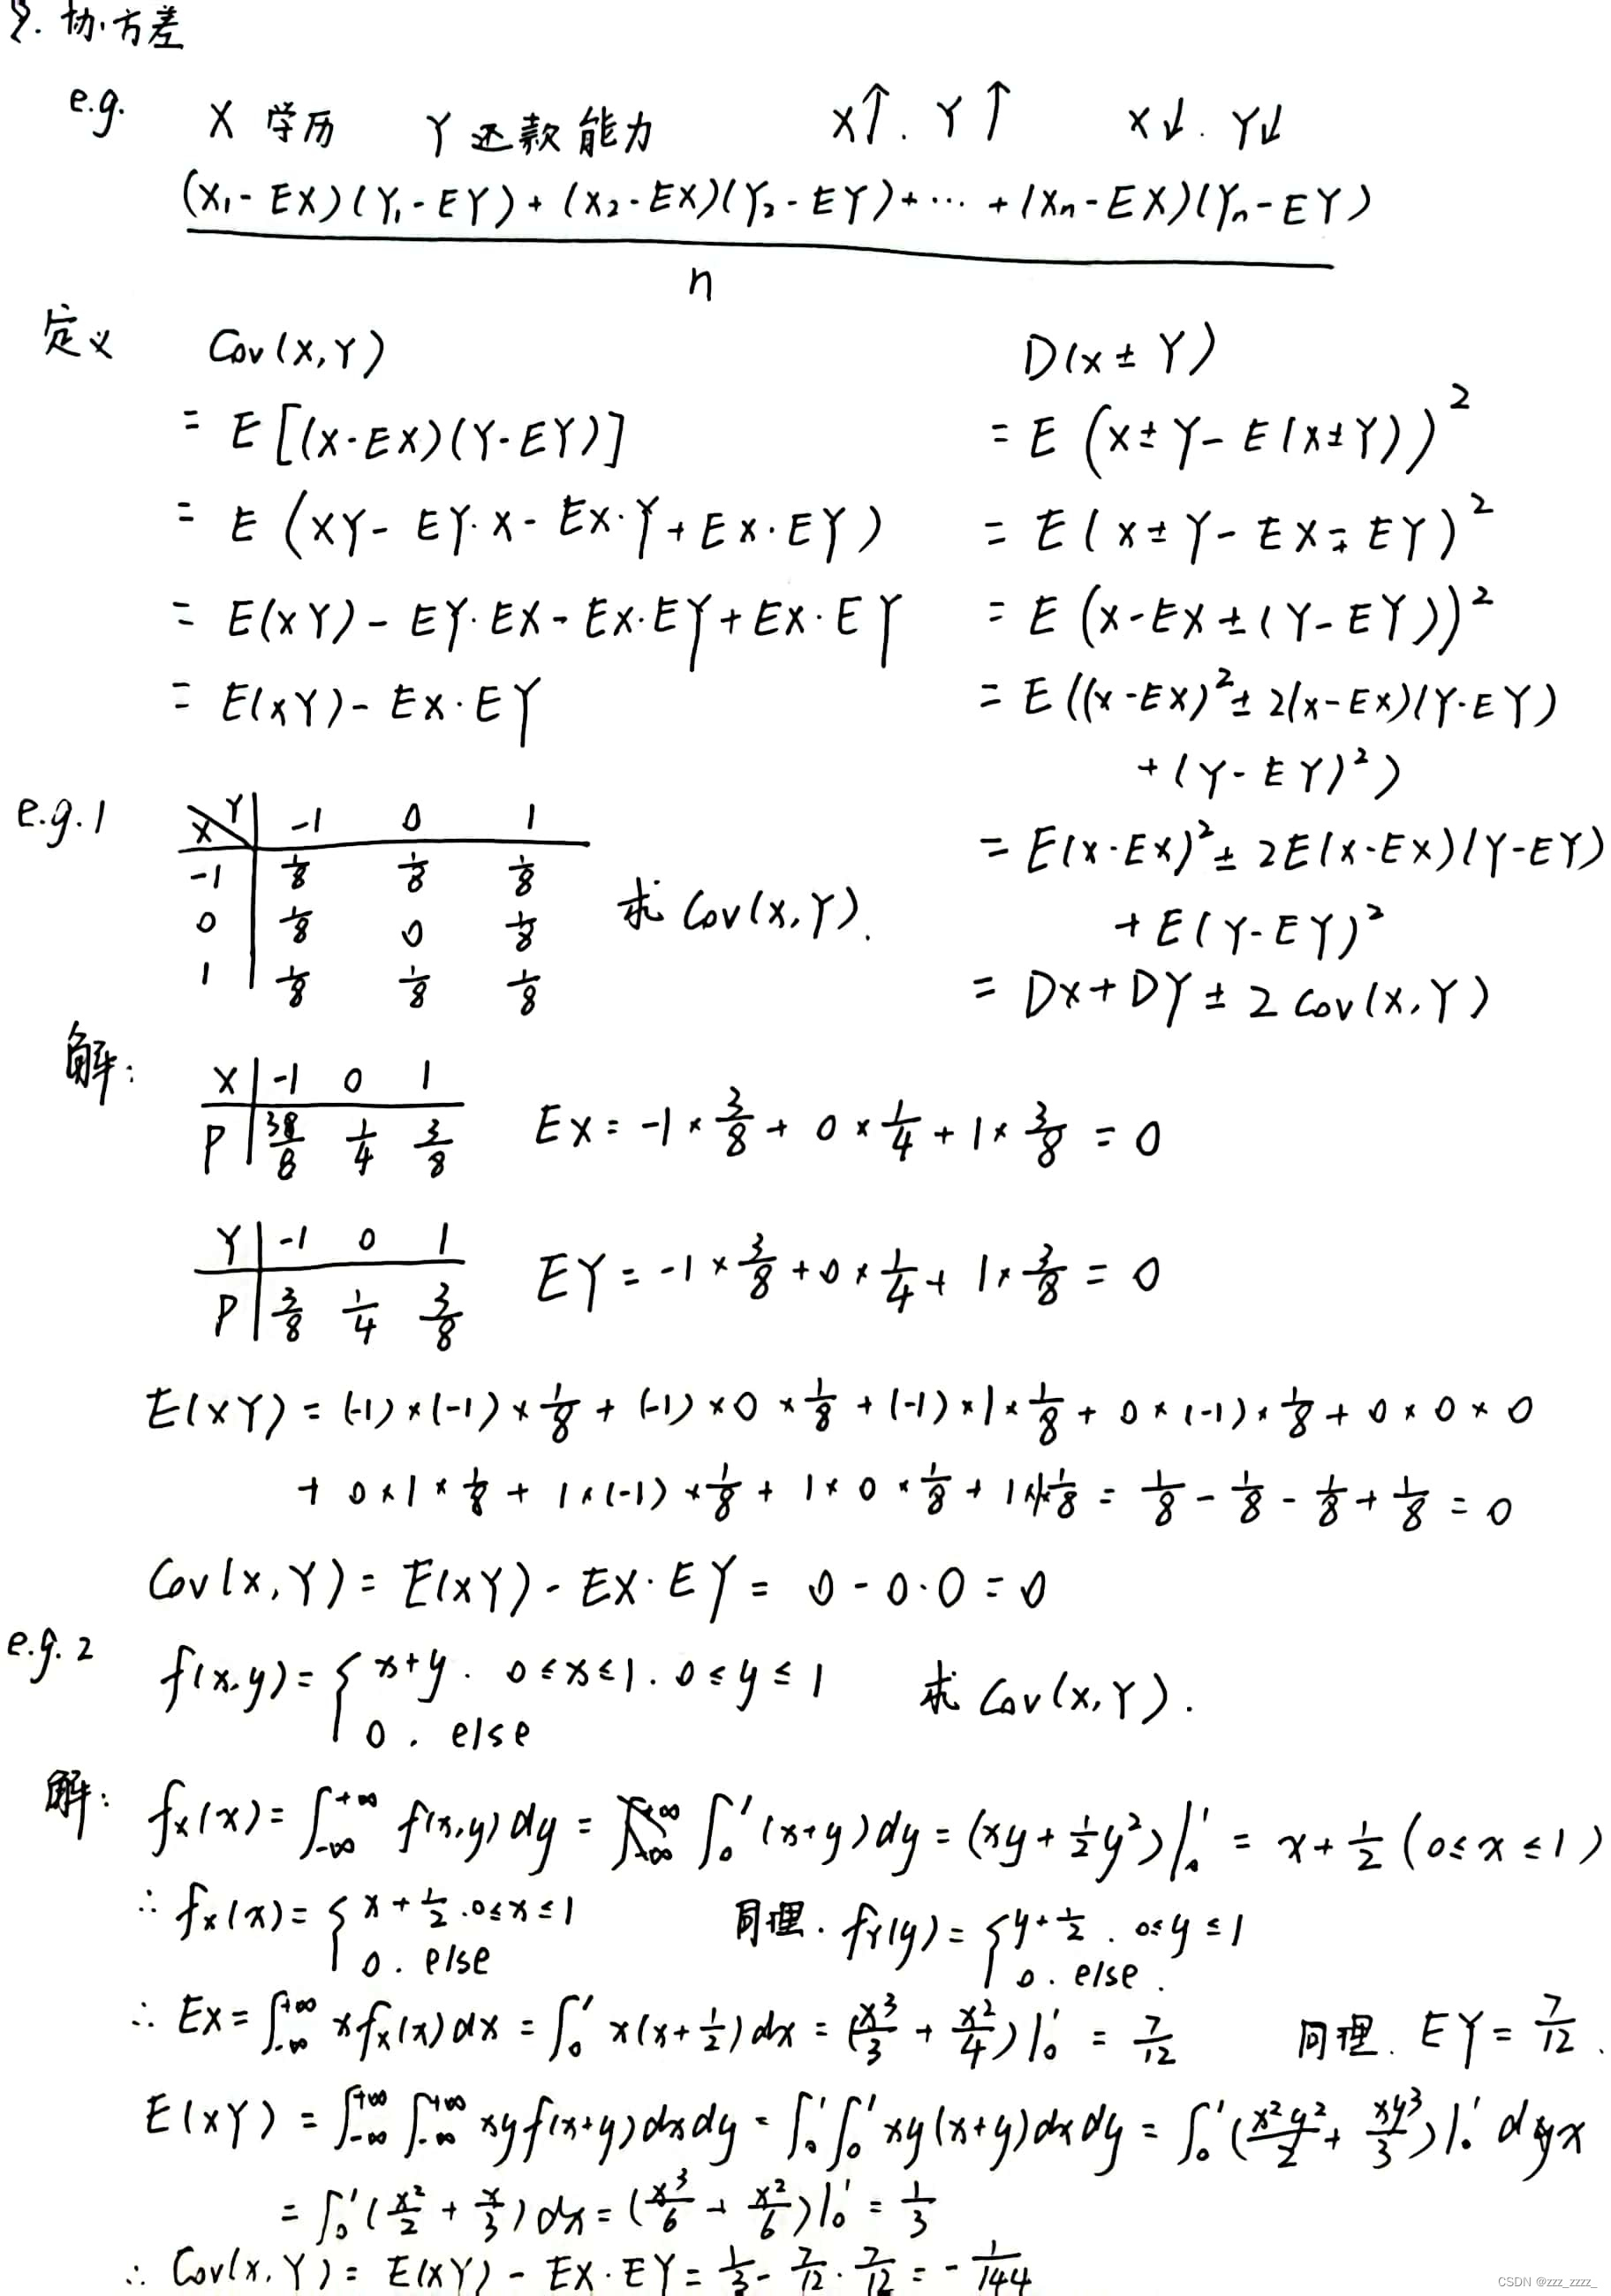 2. 协方差
e.g. X 学历 Y 还款能力 X↑. Y↑ X↓. Y↓
(X₁-EX)(Y₁-EY)+(X₂-EX)(Y₂-EY)+⋯+(Xn-EX)(Yn-EY)
n
定义 Cov(X,Y)
= E[(X-EX)(Y-EY)]
= E(XY-EY·X-EX·Y+EX·EY)
= E(XY)-EY·EX-EX·EY+EX·EY
= E(XY)-EX·EY
D(X±Y)
= E(X±Y-E(X±Y))²
= E(X±Y-EX∓EY)²
= E(X-EX±(Y-EY))²
= E((X-EX)²±2(X-EX)(Y-EY)
+(Y-EY)²)
= E(X-EX)²±2E(X-EX)(Y-EY)
+E(Y-EY)²
= DX+DY±2Cov(X,Y)
e.g.1 X Y -1 0 1
-1 1/8 1/8 1/8
0 1/8 0 1/8
1 1/8 1/8 1/8
求 Cov(X,Y).
解: X -1 0 1
P 3/8 1/4 3/8
EX = -1×3/8+0×1/4+1×3/8 = 0
Y -1 0 1
P 3/8 1/4 3/8
EY = -1×3/8+0×1/4+1×3/8 = 0
E(XY) = (-1)×(-1)×1/8+(-1)×0×1/8+(-1)×1×1/8+0×(-1)×1/8+0×0×0
+0×1×1/8+1×(-1)×1/8+1×0×1/8+1×1×1/8 = 1/8-1/8-1/8+1/8 = 0
Cov(X,Y) = E(XY)-EX·EY = 0-0·0 = 0
e.g.2 f(x,y) = { x+y. 0≤x≤1. 0≤y≤1
0. else
求 Cov(X,Y).
解: fx(x) = ∫₋∞⁺∞ f(x,y)dy = ∫₀¹(x+y)dy = (xy+1/2y²)|₀¹ = x+1/2 (0≤x≤1)
∴ fx(x) = { x+1/2. 0≤x≤1
0. else
同理. fY(y) = { y+1/2. 0≤y≤1
0. else.
∴ EX = ∫₋∞⁺∞ xfx(x)dx = ∫₀¹ x(x+1/2)dx = (x³/3+x²/4)|₀¹ = 7/12 同理. EY = 7/12.
E(XY) = ∫₋∞⁺∞∫₋∞⁺∞ xyf(x+y)dxdy = ∫₀¹∫₀¹ xy(x+y)dxdy = ∫₀¹(x²y²/2+xy³/3)|₀¹ dx
= ∫₀¹(x²/2+x/3)dx = (x³/6+x²/6)|₀¹ = 1/3
∴ Cov(X,Y) = E(XY)-EX·EY = 1/3-7/12·7/12 = -1/144
CSDN @zzz_zzzz_